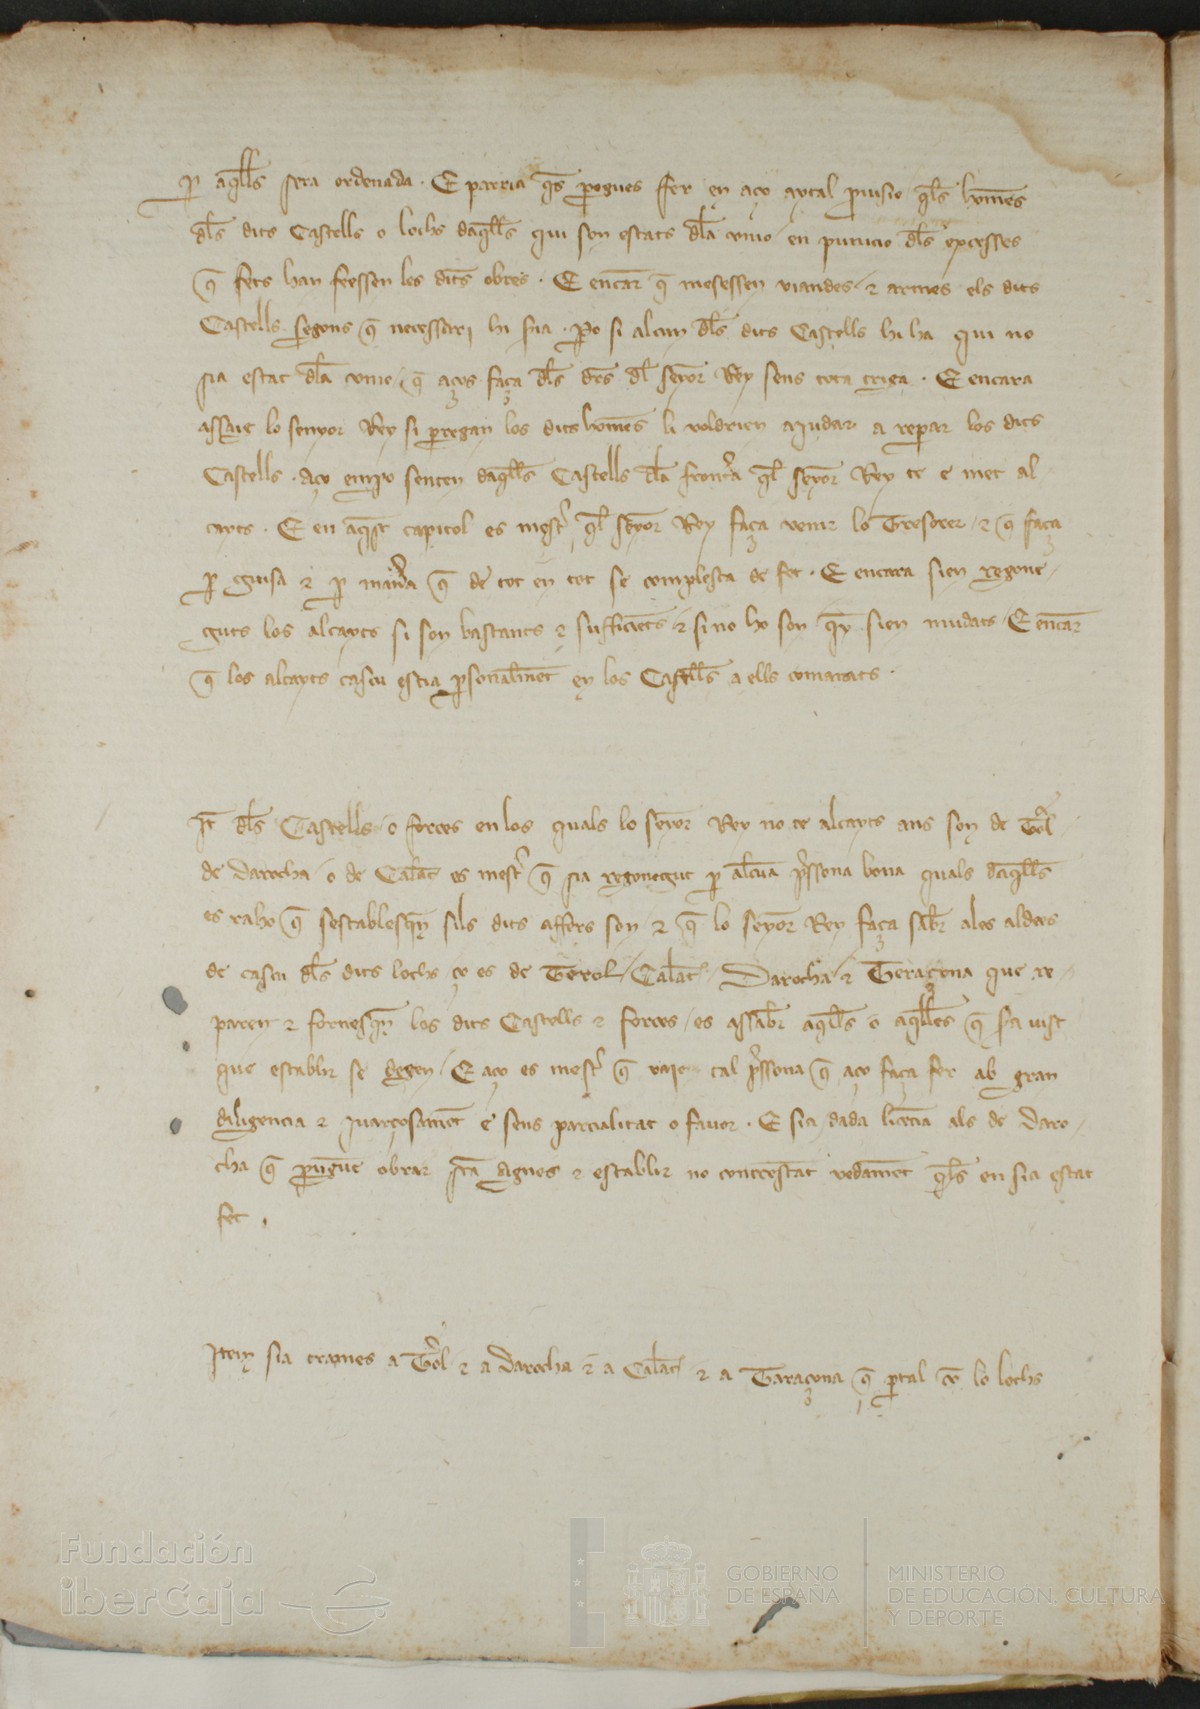 p aqlls sera ordenada · E parria qs pogues ffer en aço aytal prouisio qls homes
dls dits Castells o lochs daqlls qui son estats dla vnio en punicio dls excesses
q fets han feessen les dits obres · E encar q mesessen viandes / et armes els dits
Castells segons q necessari hi sia · Po si alcun dls dits Castells hi ha qui no
sia estat dla vnio / q aços faça dls drs dl seyor Rey sens tota triga · E encara
assaie lo senyor Rey si pregan los dits homes li voldrien aiudar a repar los dits
Castells · aço empo senten daqlls Castells dla frontra ql seyor Rey te e met al
cayts · E en aqst capitol es mestr ql seyor Rey faça venir lo Tresorer / et q faça
p guisa et p manra q de tot en tot se complesca de fet · E encara sien regone /
guts los alcayts si son bastants et sufficiets / et si no ho son qy sien mudats / E encar
q los alcayts cascu estia psonalmet en los Castlls a ells comanats ·
It dls Castells o forces en los quals lo seyor Rey no te alcayts ans son de Trol
de darocha / o de Calat es mestr q sia regonegut p alcua prssona bona quals daqlls
es raho q sestablesqn sils dits affers son et q lo seyor Rey faça sabr a les aldees
de cascu dls dits lochs ço es de Terol / Calat / Darocha et Teraçona que re /
paren et fornesqn los dits Castells et forces / es assabr aqlls o aqlles q sia vist
que establir se degen / E aço es mestr q vaie tal prssona q aço faça fer ab gran
diligencia et iuarçosamet e sens parcialitat o fauor · E sia dada licecia als de Daro /
cha q puguet obrar sta Agnes et establir no contrestat vedamet qls en sia estat
fet ·
Item sia trames a Trol et a darocha et a Calat et a Taraçona q ptal com lo lochs
Fundación
iberCaja
GOBIERNO
DE ESPAÑA
MINISTERIO
DE EDUCACIÓN, CULTURA
Y DEPORTE